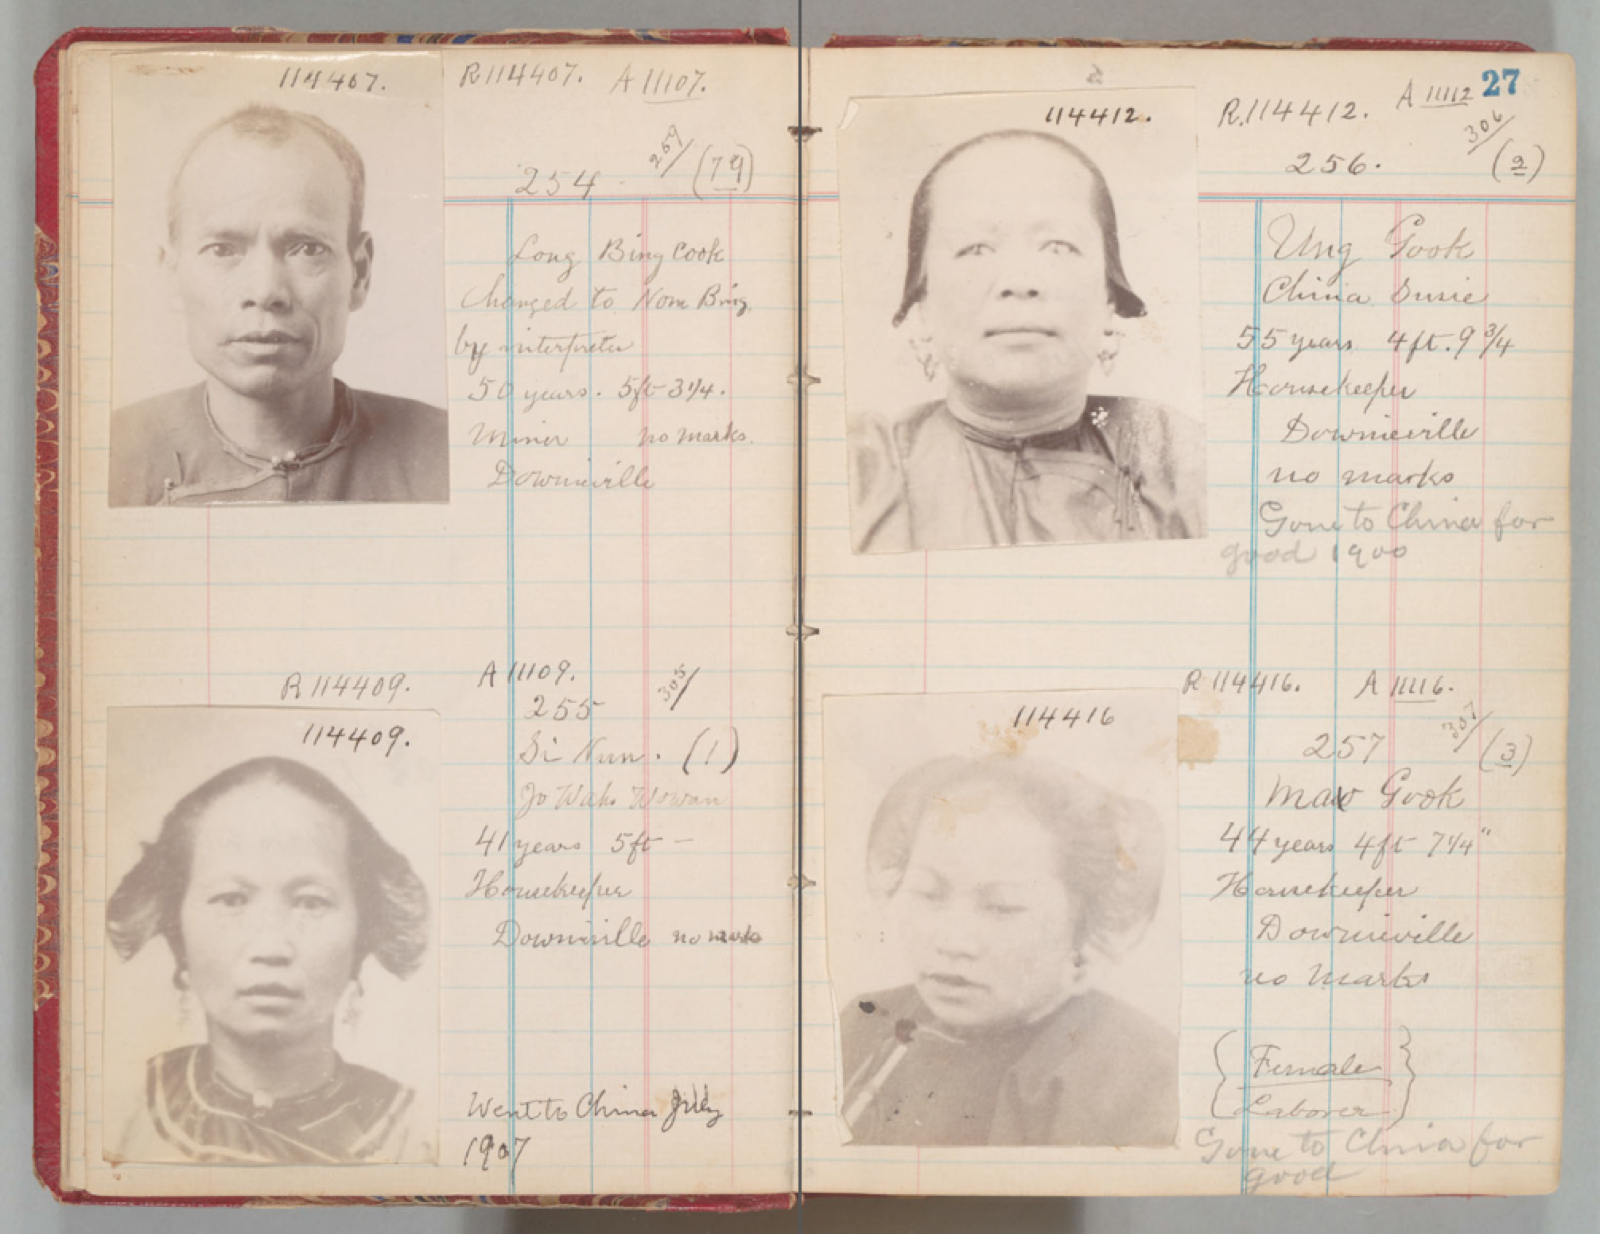 114407.
R114407. A 11107.
254 259/ (79)
Long Bing Cook
Changed to Nom Bing,
by interpreter
50 years. 5ft 3 1/4.
Miner no marks.
Downieville
R114409.
114409.
A 11109.
255 305/
Si Nun. (1)
Jo Wahs Wowan
41 years 5ft —
Housekeeper
Downieville no marks
Went to China July
1907
27
114412.
R.114412. A 11112
256. 306/ (2)
Ung Gook
China Susie
55 years 4 ft. 9 3/4
Housekeeper
Downieville
no marks
Gone to China for
good 1900
114416
R 114416. A 11116.
257 307/ (3)
Gook
44 years 4ft 7 1/4"
Housekeeper
Downieville
no marks
{Female
Laborer}
Gone to China for
good